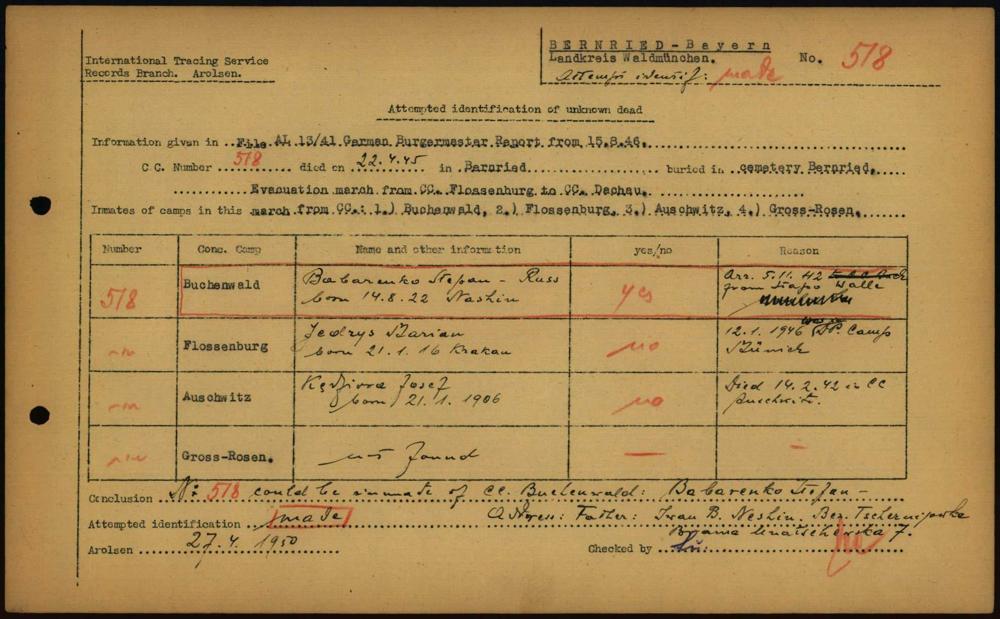 International Tracing Service
Records Branch. Arolsen.
BERNRIED-Bayern
Landkreis Waldmünchen.
No. 518
Attempt identif: made
Attempted identification of unknown dead
Information given in ..File AL 13/41 German Burgermester Report from 15.8.46.
C.C. Number 518 died on 22.4.45 in Bernried buried in cemetery Bernried.
Evacuation march from CC. Flossenburg to CC. Dachau.
Inmates of camps in this march from CC.: 1.) Buchenwald, 2.) Flossenburg, 3.) Auschwitz, 4.) Gross-Rosen.
Number Conc. Camp Name and other information yes/no Reason
518 Buchenwald Babarenko Stepan - Russ born 14.8.22 Nashin yes Arr. 5.11.42 from Stapo Halle
-"- Flossenburg Jedrys Marian born 21.1.16 Krakau no 12.1.1946 was in DP. Camp
-"- Auschwitz Josef born 21.1.1906 no Died 14.2.42 in CC Auschwitz.
-"- Gross-Rosen. not found — —
Conclusion No 518 could be inmate of CC. Buchenwald: Babarenko Stefan -
Attempted identification made Address: Father: Iwan B. Neshin, Ber. Tschernigowka
Arolsen 27.4.1950 Checked by